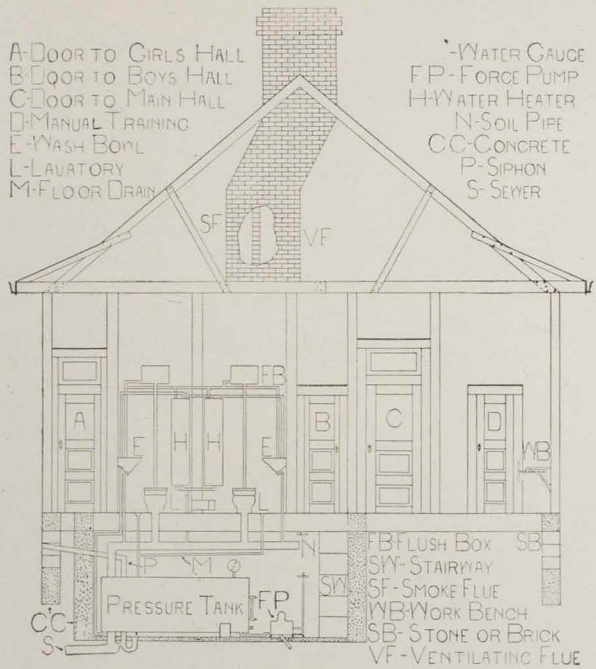 A-DOOR TO GIRLS HALL
B-DOOR TO BOYS HALL
C-DOOR TO MAIN HALL
D-MANUAL TRAINING
E-WASH BOWL
L-LAVATORY
M-FLOOR DRAIN
-WATER GAUGE
FP-FORCE PUMP
H-WATER HEATER
N-SOIL PIPE
CC-CONCRETE
P-SIPHON
S-SEWER
SF
VF
FB
A
E
H
H
E
B
C
D
WB
L
L
P
M
N
SW
PRESSURE TANK
FP
CC
S
FB-FLUSH BOX
SB
SW-STAIRWAY
SF-SMOKE FLUE
WB-WORK BENCH
SB-STONE OR BRICK
VF-VENTILATING FLUE